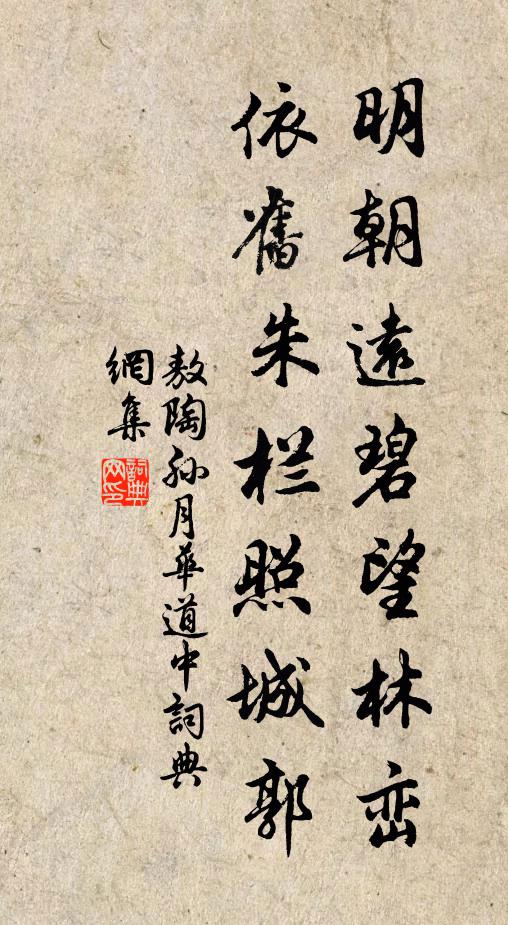 明朝遠碧望林峦
依舊朱栏照城郭
敖陶孙月華道中詞典
網集
詞典網印